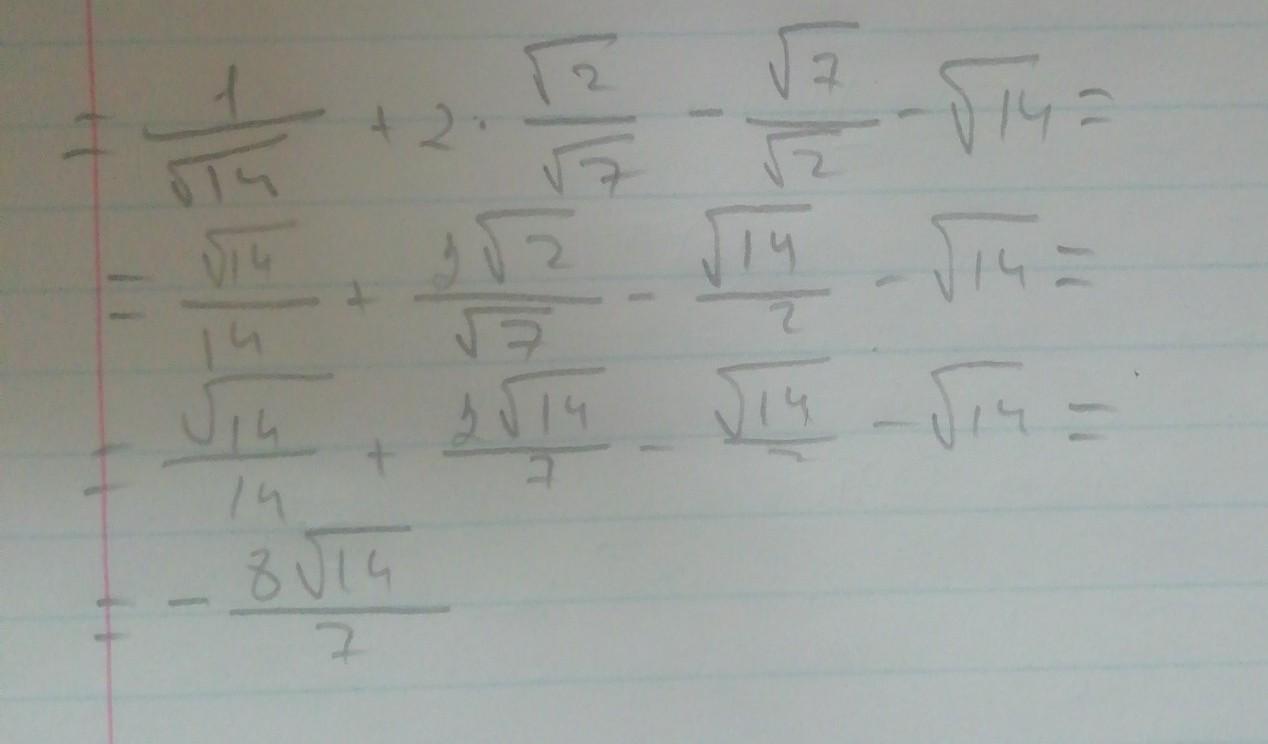 = 1/√14 + 2 · √2/√7 - √7/√2 - √14 =
= √14/14 + 2√2/√7 - √14/2 - √14 =
= √14/14 + 2√14/7 - √14/2 - √14 =
= - 8√14/7